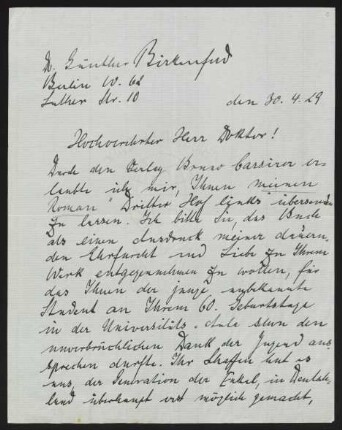 Dr. Günther Birkenfeld
Berlin W. 62
Luther Str. 10
den 30. 4. 29
Hochverehrter Herr Doktor!
Durch den Verlag Bruno Cassirer er-
laubte ich mir, Ihnen meinen
Roman "Dritter Hof links" übersenden
zu lassen. Ich bitte Sie, das Buch
als einen Ausdruck meiner dauern-
den Ehrfurcht und Liebe zu Ihrem
Werk entgegennehmen zu wollen, für
das Ihnen der junge unbekannte
Student an Ihrem 60. Geburtstage
in der Universitäts-Aula den
unverbrüchlichen Dank der Jugend aus-
sprechen durfte. Ihr Schaffen hat es
uns, der Generation der Enkel, in Deutsch-
land überhaupt erst möglich gemacht,